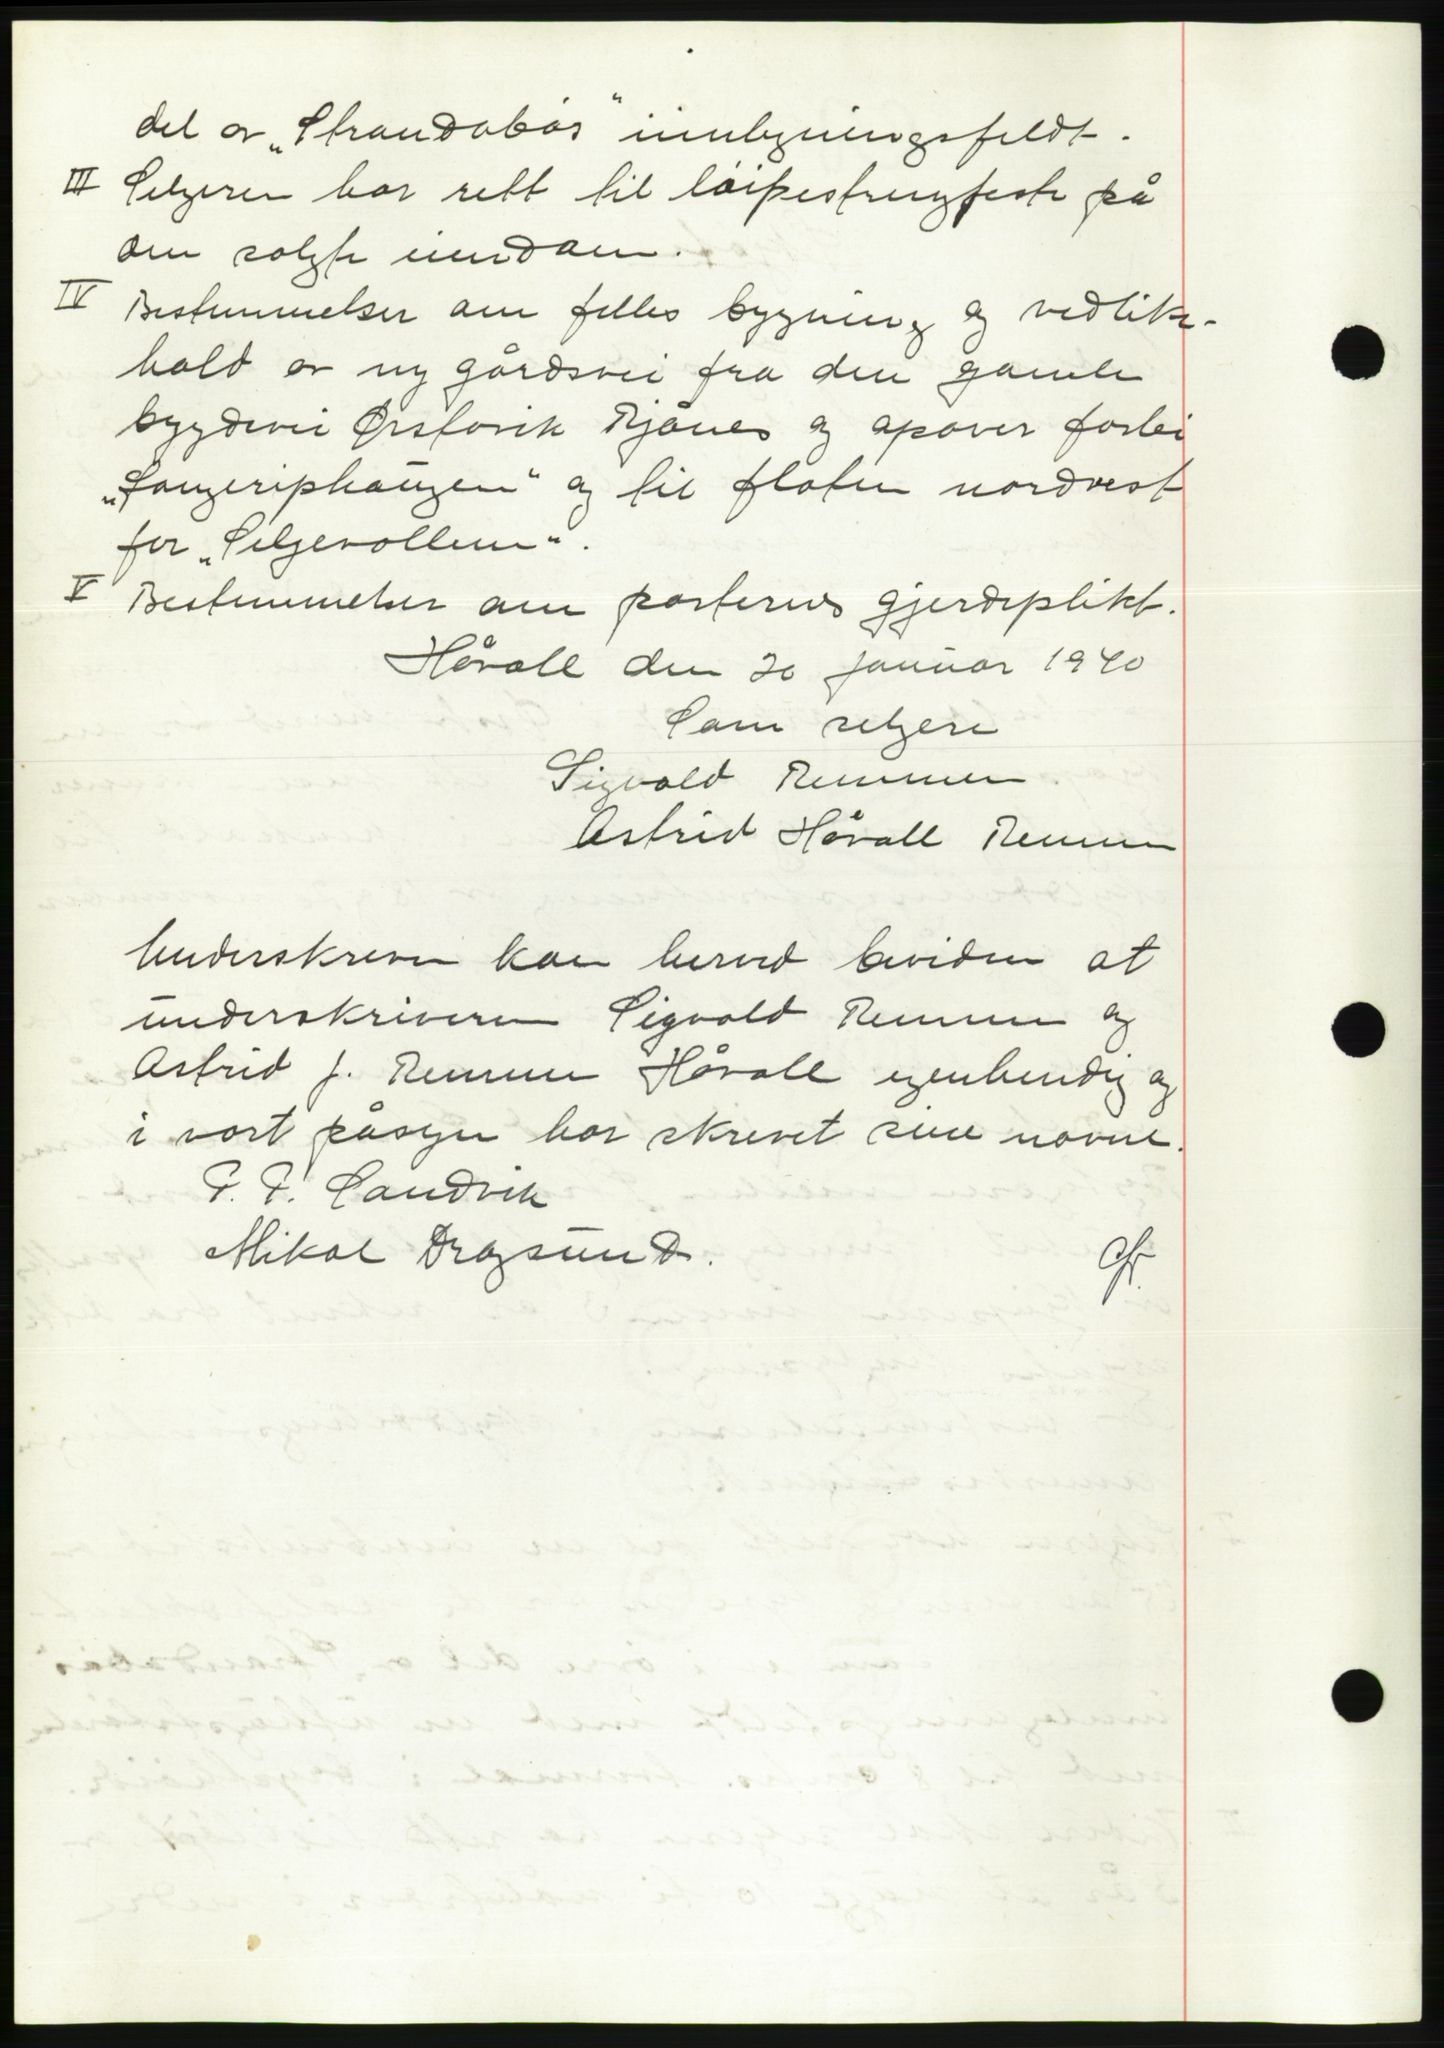 del av „Strandabøs" innhegningsfeldt.
III Selgeren har rett til løipestrengfeste på
den solgte eiendom.
IV Bestemmelser om felles bygning og vedlike-
hold av ny gårdsvei fra den gamle
bygdevei Ørstavik Rjånes og opover forbi
og til floten nordvest
for „Seljevollem".
V Bestemmelser om partenes gjerdeplikt.
Håvoll den 20 januar 1940
Som selgere
Sigvald Remmen.
Astrid Håvoll Remmen
Underskreven kan herved beviden at
underskriveren Sigvald Remmen og
Astrid J. Remmen Håvoll egenhendig og
i vort påsyn har skrevet sine navne.
P. P. Sandvik
Mikal Dragsund.